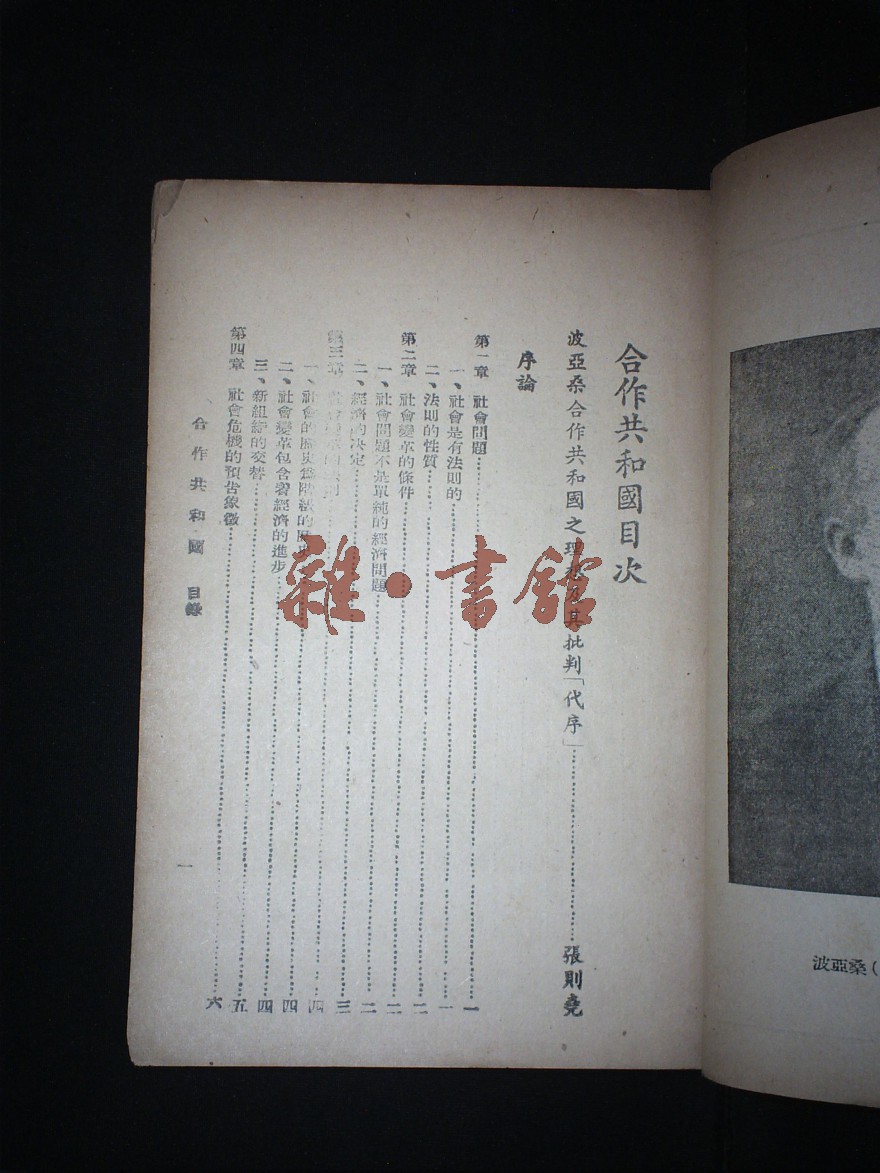 合作共和國目次
波亞桑合作共和國之理 其批判「代序」 張則堯
序論
第一章 社會問題 一
一、社會是有法則的 一
二、法則的性質 二
第二章 社會變革的條件 二
一、社會問題不是單純的經濟問題 二
二、經濟的决定 三
第三章 四
一、社會的歷史爲階級的歷史 四
二、社會變革包含着經濟的進步 四
三、新組織的交替 五
第四章 社會危機的預告象徵 六
合作共和國 目錄
一
波亞桑(
雜·書館